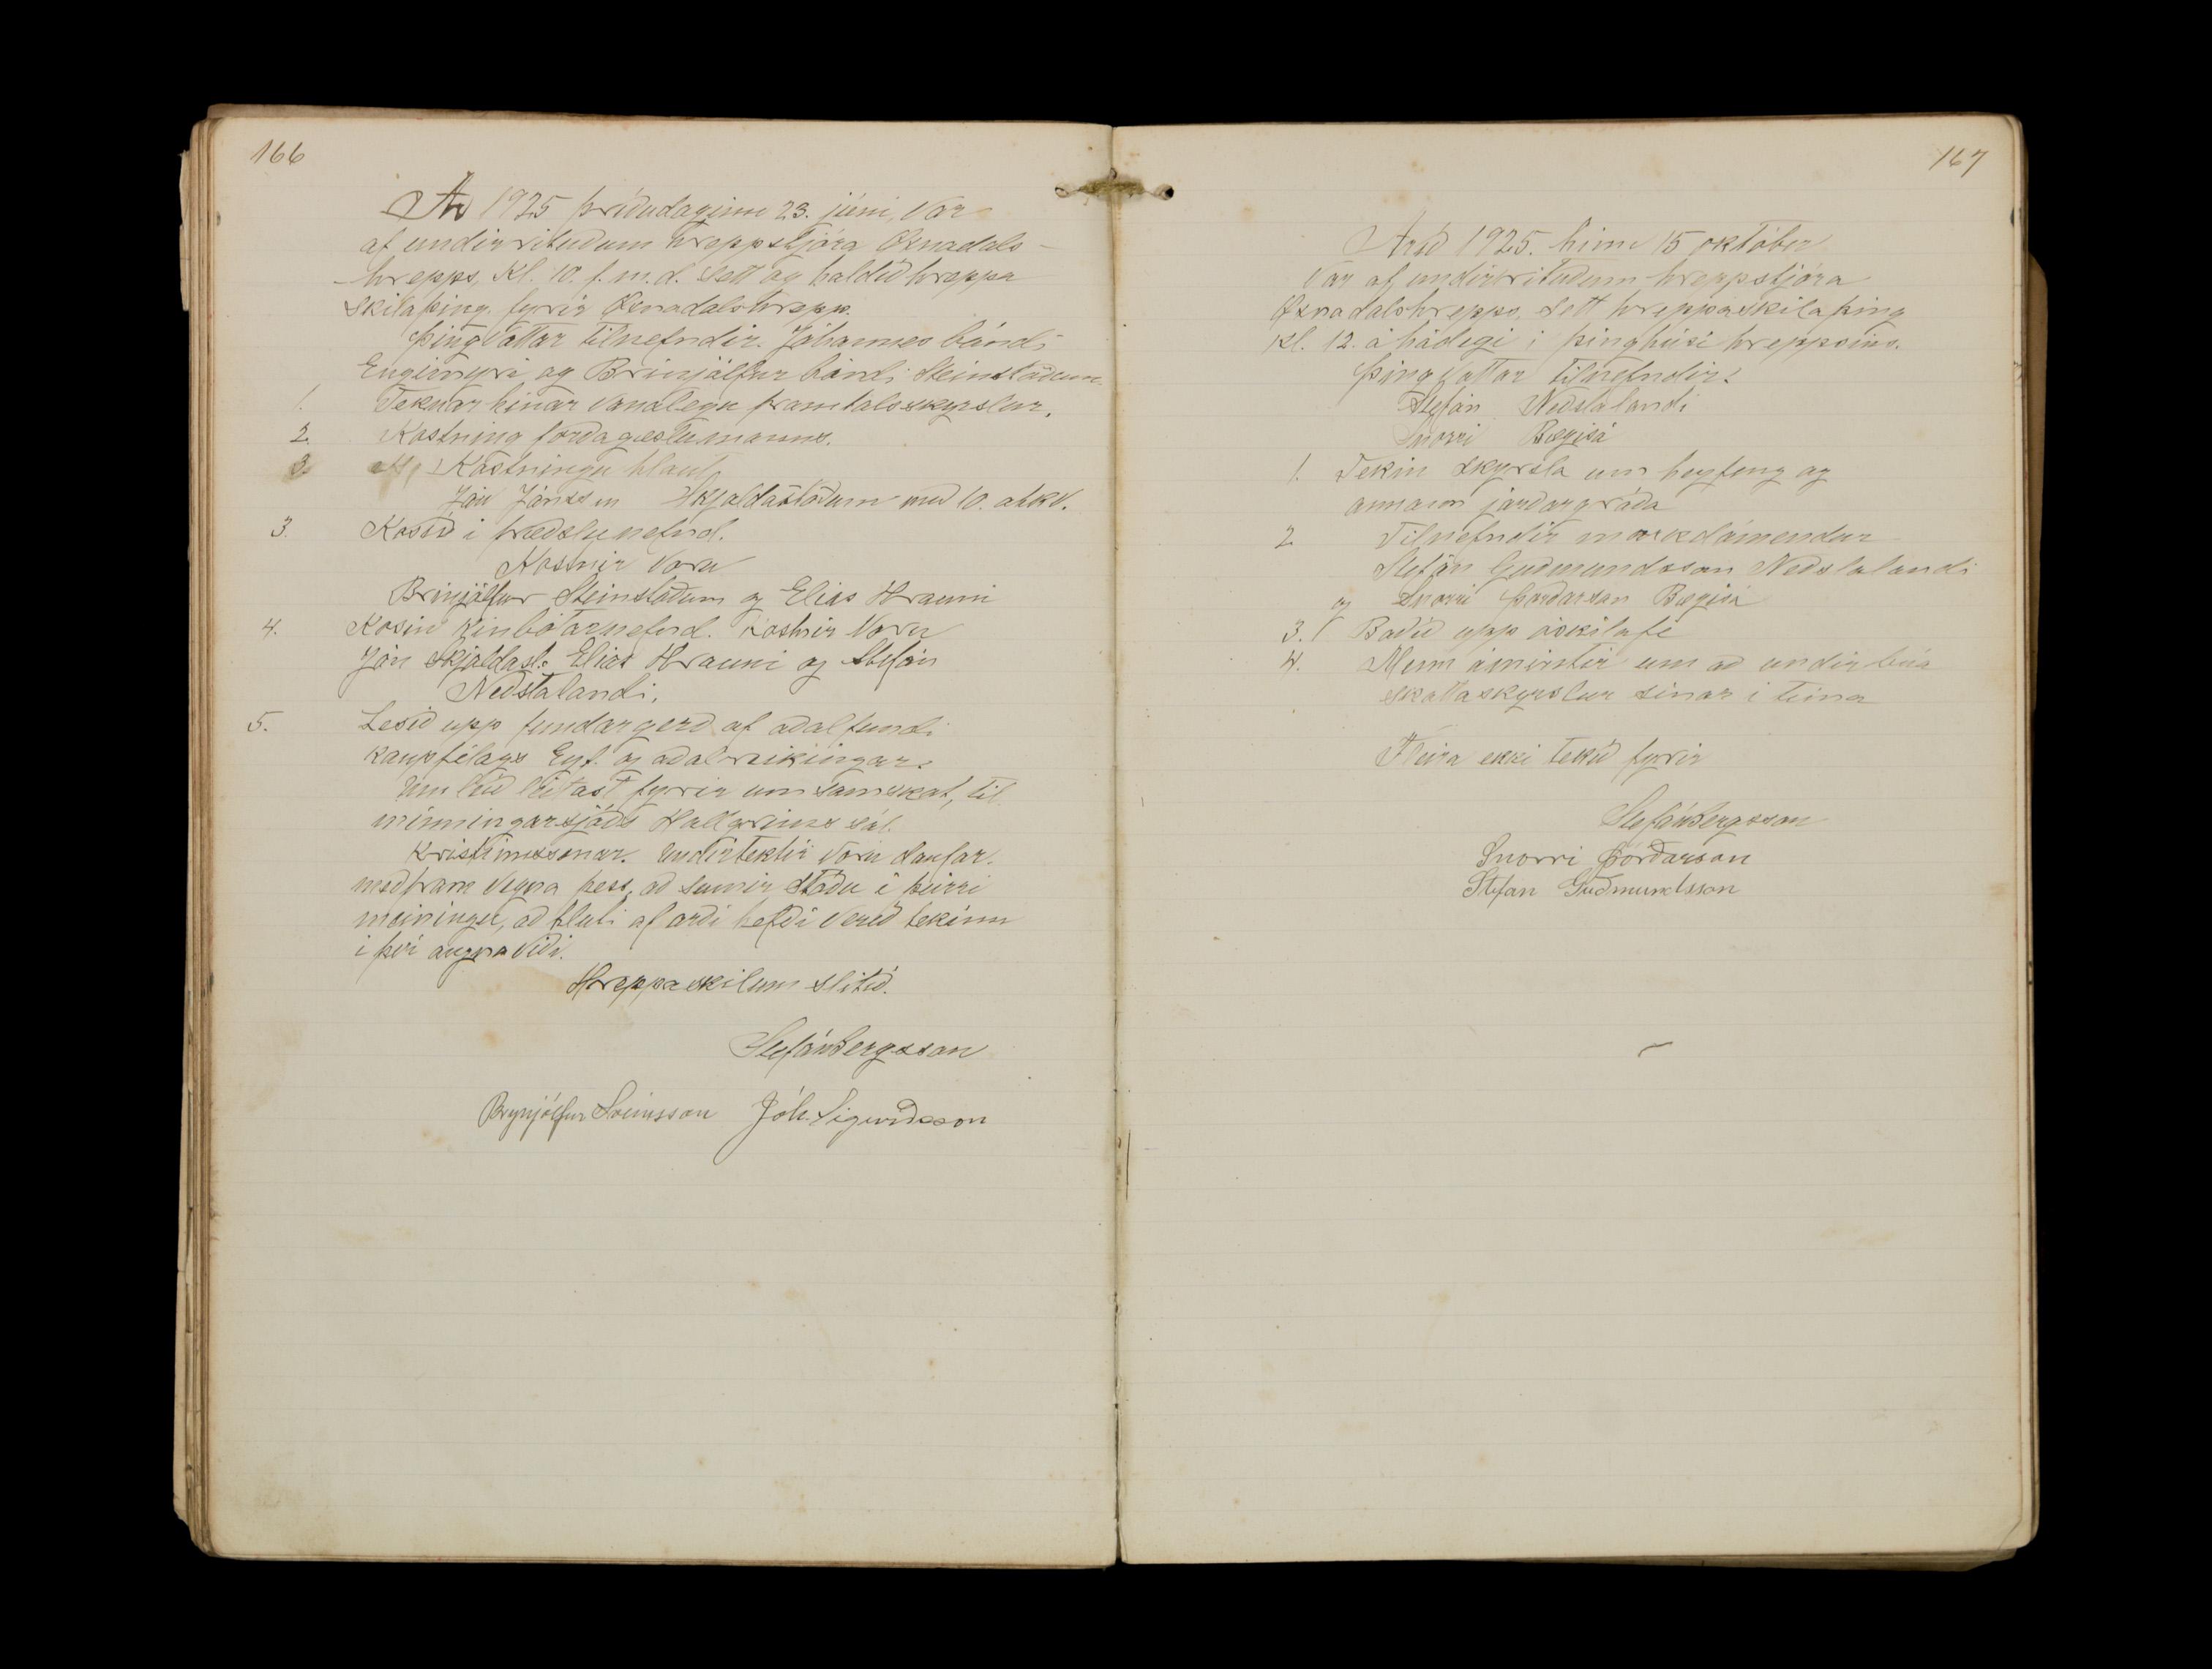 166
Ár 1925 þriðudaginn 23. júni, var
af undirrituðum hreppstjóra Öxnadals-
hrepps, kl. 10. f. m. d. sett og haldið hreppa
skilaþing. fyrir Öxnadalshrepp.
Þingvottar tilnefndir. Jóhannes bóndi
Engimyri og Brinjólfur bóndi Steinstöðum.
1. Teknar hinar vanalegu framtalsskyrslur.
2. Kostning forðagæstumanns.
3. Kostningu hlaut
Jón Jónsson Skjaldastöðum með 10. atkv.
3. Kosið i fræðslunefnd.
Kosnir voru
Brinjólfur Steinstöðum og Elias Hrauni
4. Kosin kinbótarnefnd. kosnir voru
Jón Skjaldast. Elias Hrauni og Stefán
Neðstalandi.
5. Lesið upp fundargerð af aðalfundi
kaupfélags Eyf. og aðalreikingar.
Um leið leitast fyrir um samskot, til
minningarsjóðs Hallgrims sál.
Kristinssonar. Undirtektir voru daufar.
meðfram vegna þess, að sumir stóðu i þeirri
meiningu, að hluti af arði hefði verið tekinn
i því augna viði.
Hreppaskilum slitið.
Stefán Bergsson
Brynjólfur Sveinsson Jóh. Sigurðsson
167
Árið 1925. hinn 15 október
var af undirrituðum hreppstjóra
Öxnadalshrepps. sett hreppaskilaþing
kl. 12. á hádegi i þinghúsi hreppsins.
Þingvottar tilnefndir.
Stefán Neðstalandi
Snorri Bægisá
1. Tekin skyrsla um heyfeng og
annann jarðargróða
2 Tilnefndir markdómendur
Stefán Guðmundsson Neðstalandi
og Snorri Þorðarson Bægisá
3. Boðið upp óskilafé
4. Menn ámintir um að undirbúa
skattaskyrslur sinar i tima
Fleira ekki tekið fyrir
Stefán Bergsson
Snorri Þórðarson
Stefán Guðmundsson